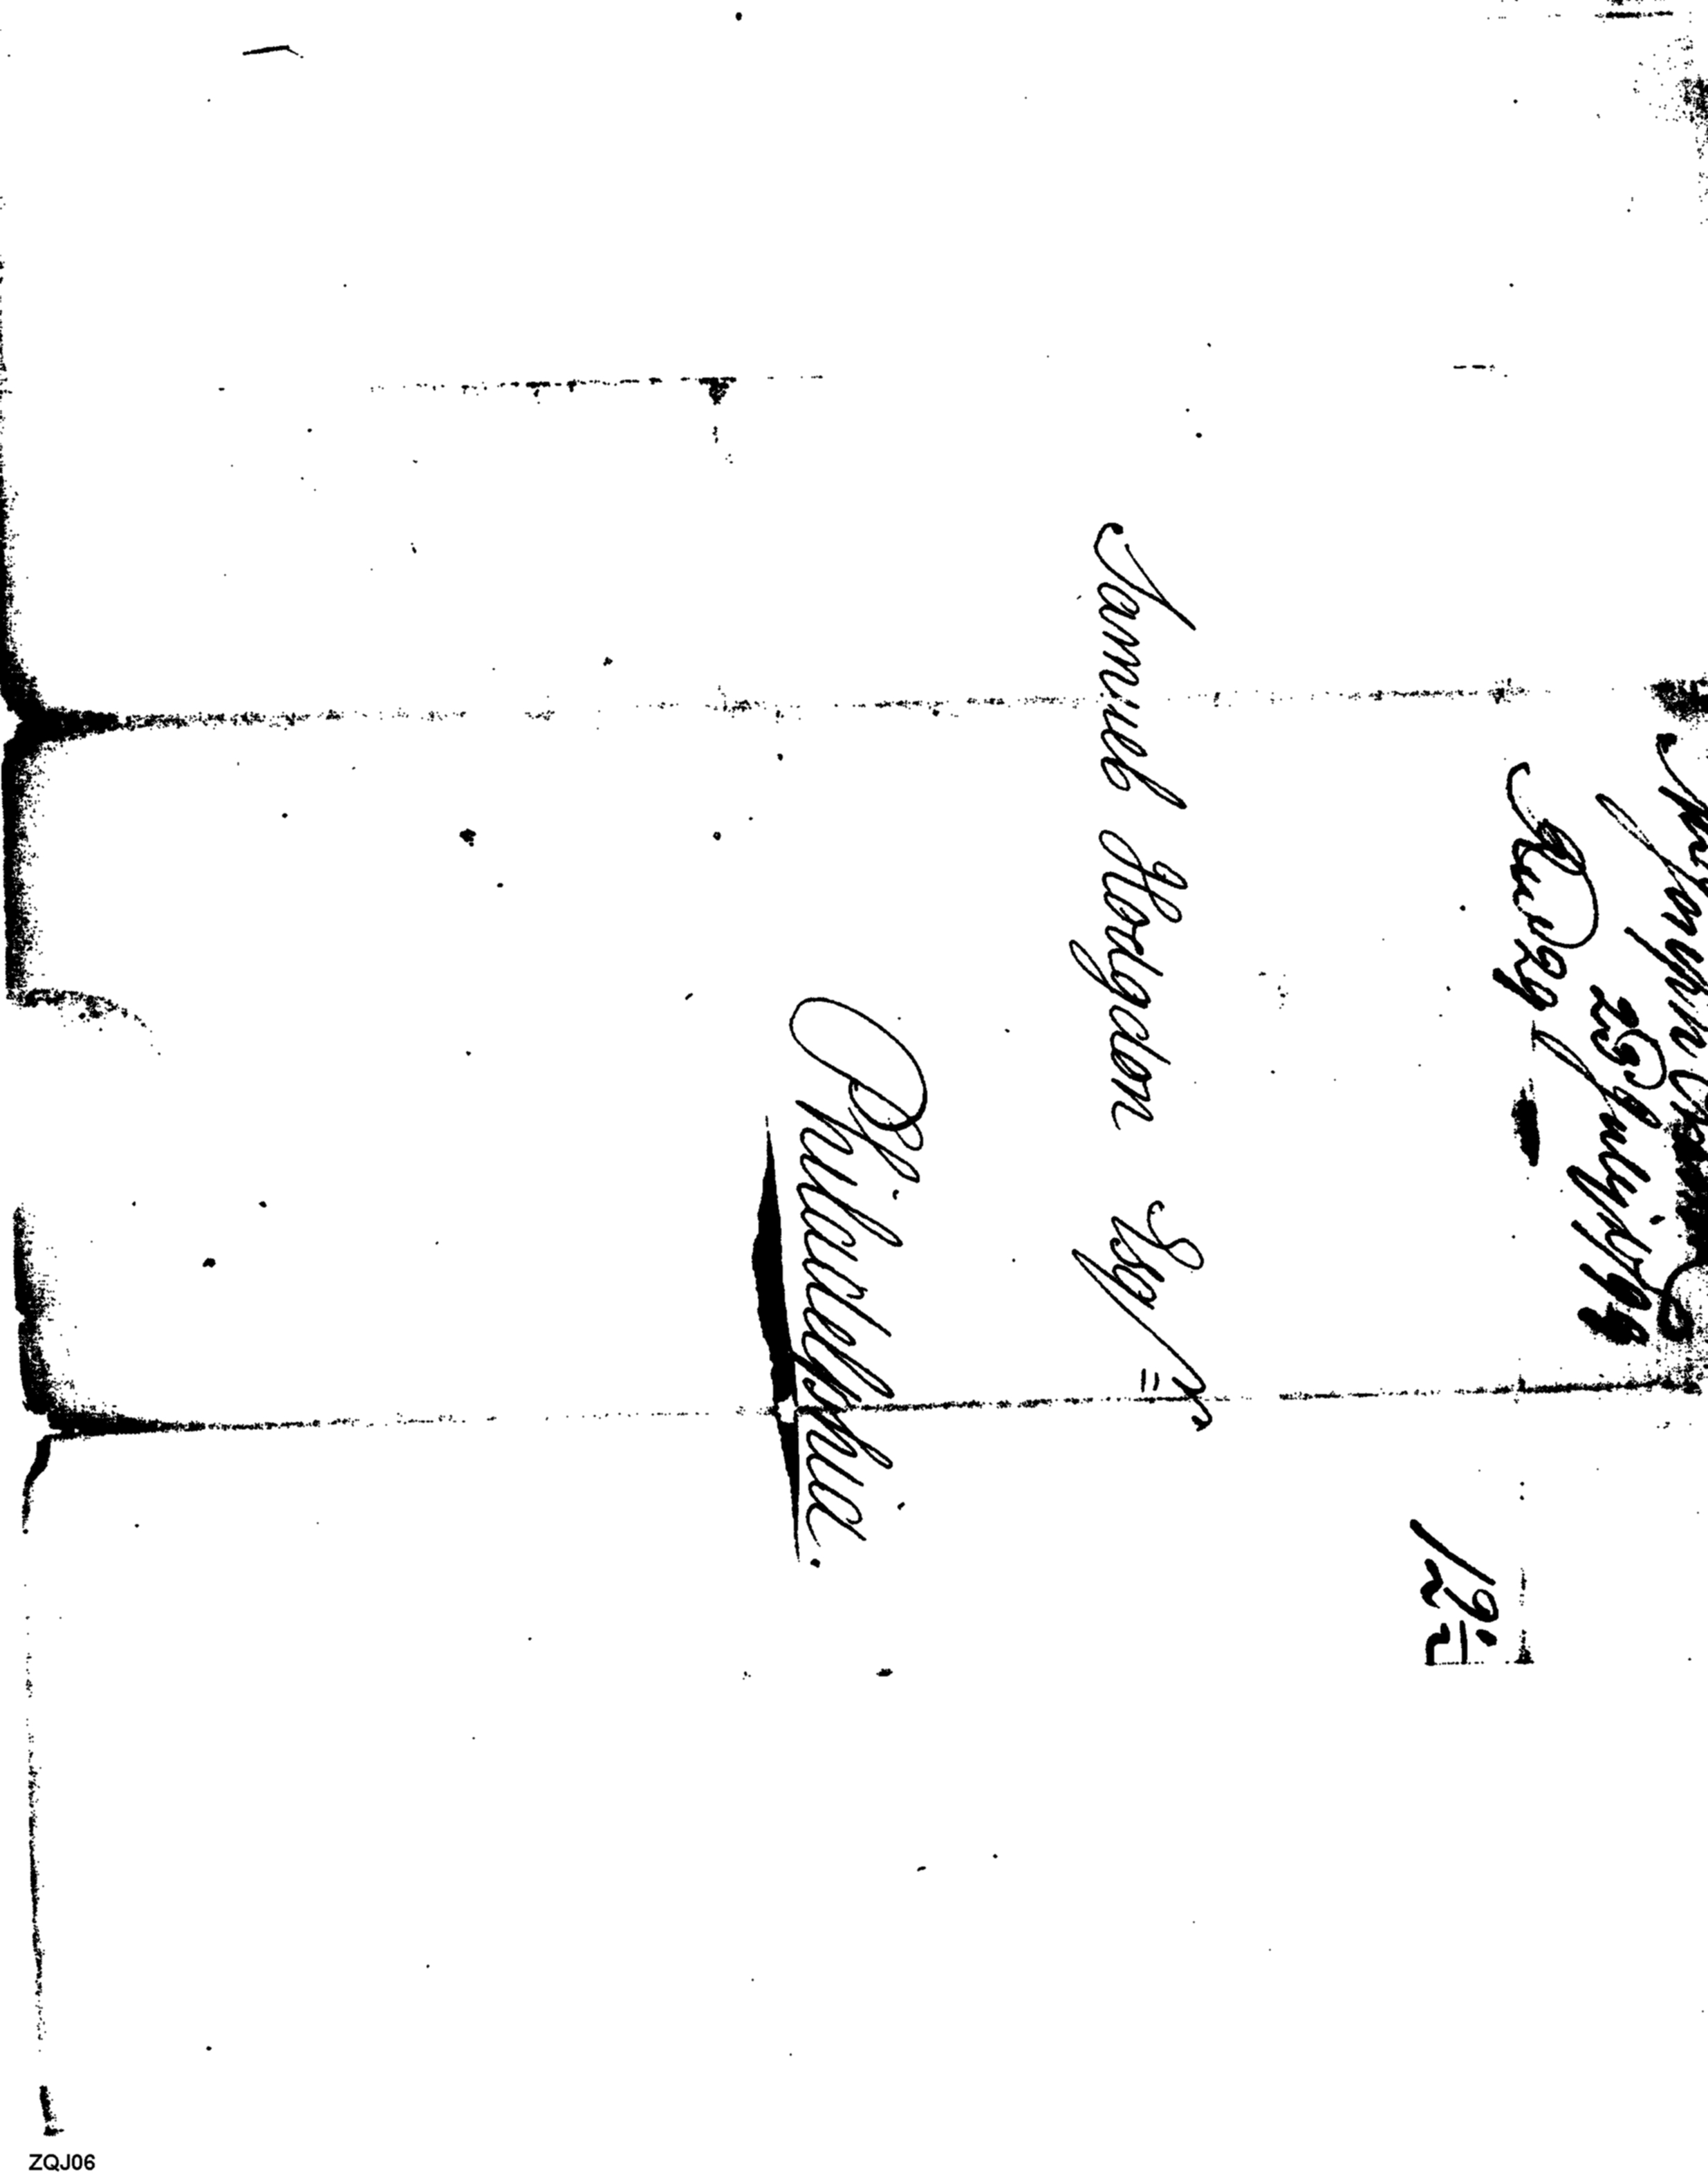 25 July 1799
12½
Samuel Hodgdon Esqr
Philadelphia.
ZQJ06